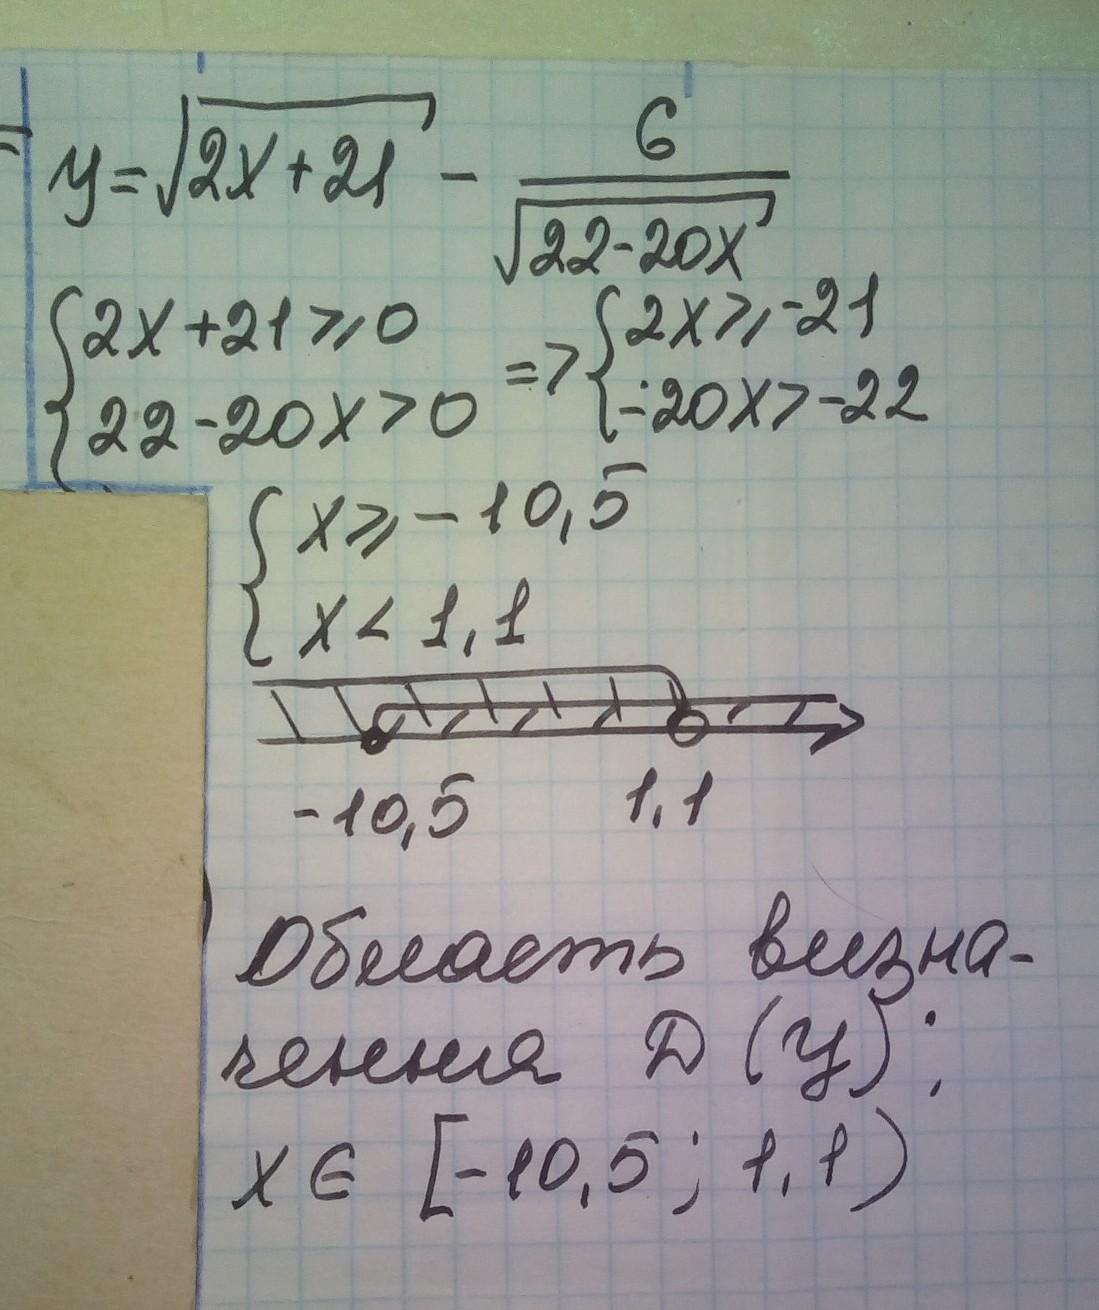 y=√2x+21 - 6/√22-20x
{2x+21⩾0 => {2x⩾-21
{22-20x>0 {-20x>-22
{x⩾-10,5
{x<1,1
-10,5 1,1
Область визна-
чення D(y):
x∈ [-10,5; 1,1)